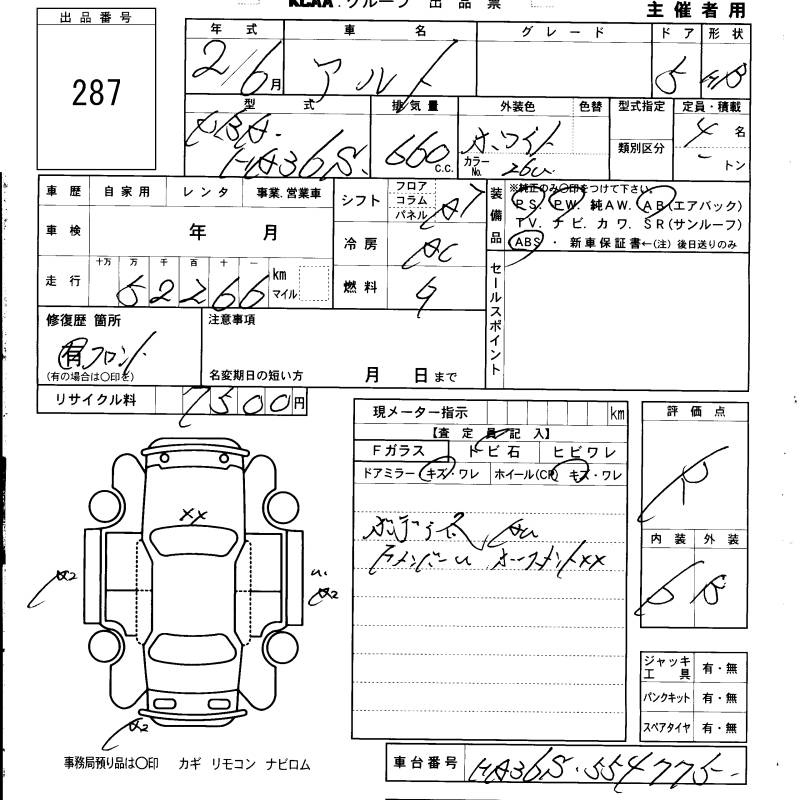 KCAA.グループ 出品票
主催者用
出品番号
287
年式 車名 グレード ドア 形状
2/6月 アルト 5 HB
型式 排気量 外装色 色替 型式指定 定員・積載
HA36S. 660 c.c. ホワイト 類別区分 4名
カラーNo. 26U トン
車歴 自家用 レンタ 事業.営業車
車検 年 月
走行 十万 万 千 百 十 一 km マイル
52266
シフト フロア コラム パネル AT
冷房 AC
燃料
装備品 ※純正のみ○印をつけて下さい。
PS. PW. 純AW. AB(エアバック)
TV. ナビ. カワ. SR(サンルーフ)
ABS・新車保証書←(注)後日送りのみ
セールスポイント
修復歴 箇所
有 フロント
(有の場合は○印を)
注意事項
名変期日の短い方 月 日まで
リサイクル料 7500円
現メーター指示 km
【査定員記入】
Fガラス トビ石 ヒビワレ
ドアミラー キズ・ワレ ホイール(CP) キズ・ワレ
XX
A2
A2
A2
評価点
R
内装 外装
B B
ジャッキ工具 有・無
パンクキット 有・無
スペアタイヤ 有・無
事務局預り品は○印 カギ リモコン ナビロム
車台番号 HA36S-554775